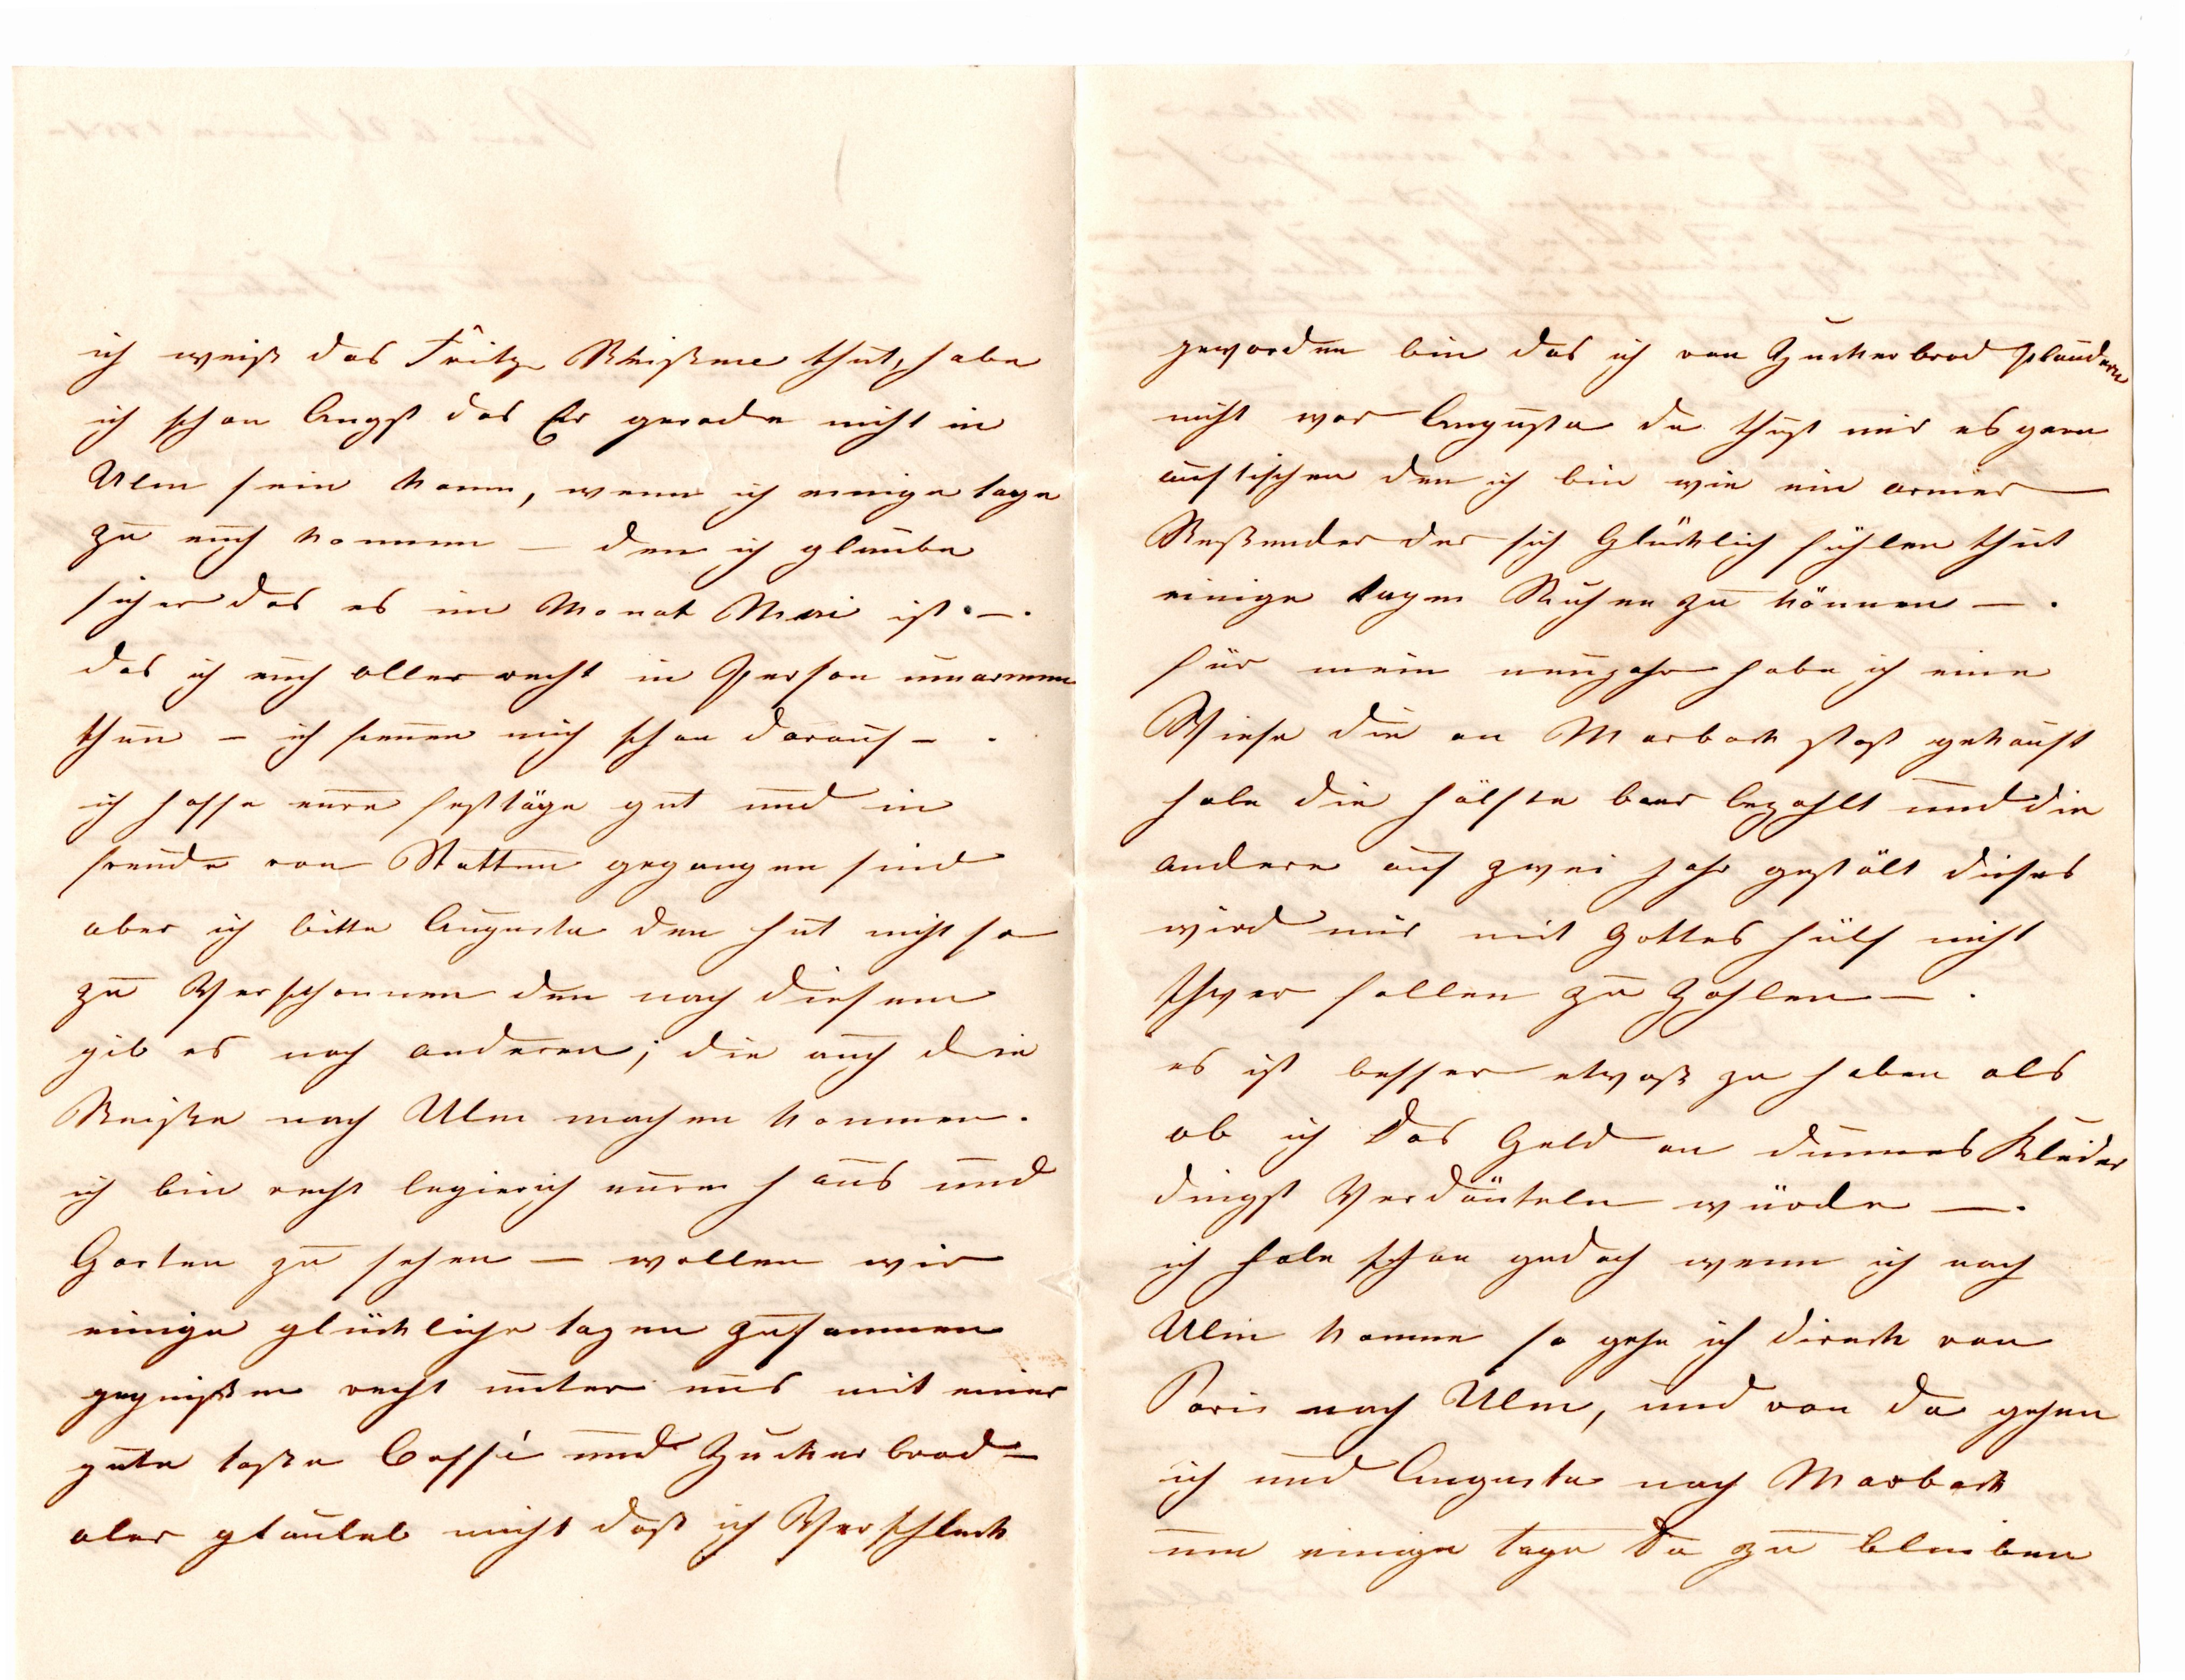 ich weiß das Fritz Reißene thut, habe
ich schon Angst das Er gerade nicht in
Ulm sein kann, wenn ich einige tage
zu euch komme — den ich glaube
sicher das es im Monat Mai ist. —.
das ich euch aller recht in Person umarmen
thun — ich freuen mich schon darauf — .
ich hoffe eure festtäge gut und in
freude von Statten gegangen sind
aber ich bitte Augusta den hut nicht so
zu Verschonnen den nach diesem
gib es noch anderen; die auch die
Reiße nach Ulm machen konnen.
ich bin recht begierich euren haus und
Garten zu sehen — wollen wir
einige glückliche tagen zusammen
gegnißen recht unter uns mit einer
gute taße Caffé und Zuckerbrod —
aber glaubet nicht daß ich Verschleck
geworden bin das ich von Zuckerbrod plaudern
nicht war Augusta du thust mir es gern
auftischen den ich bin wie ein armer
Reßender der sich Glücklich fühlen thut
einige tagen Ruhen zu können — .
für mein neujahr habe ich eine
Wiese die an Marback stost gekauft
habe die hälfte baar bezahlt und die
andere auf zwei Jahr gestält dieses
wird mir mit Gottes hülf nicht
schwer fallen zu Zahlen — .
es ist besser etwaß zu haben als
ob ich das Geld an dummes Kleider
dingst Verdäuteln würde — .
ich habe schon gedach wenn ich nach
Ulm komme so gehe ich direck von
Paris nach Ulm, und von da gehen
ich und Augusta nach Marback
um einige tage da zu bleiben